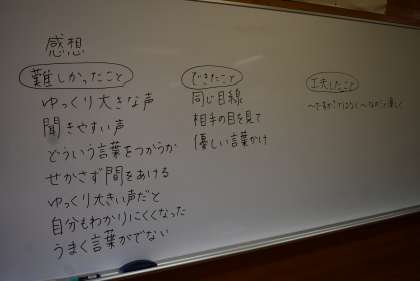 感想
難しかったこと
ゆっくり大きな声
聞きやすい声
どういう言葉をつかうか
せかさず間をあける
ゆっくり大きい声だと
自分もわかりにくくなった
うまく言葉がでない
できたこと
同じ目線
相手の目を見て
優しい言葉かけ
工夫したこと